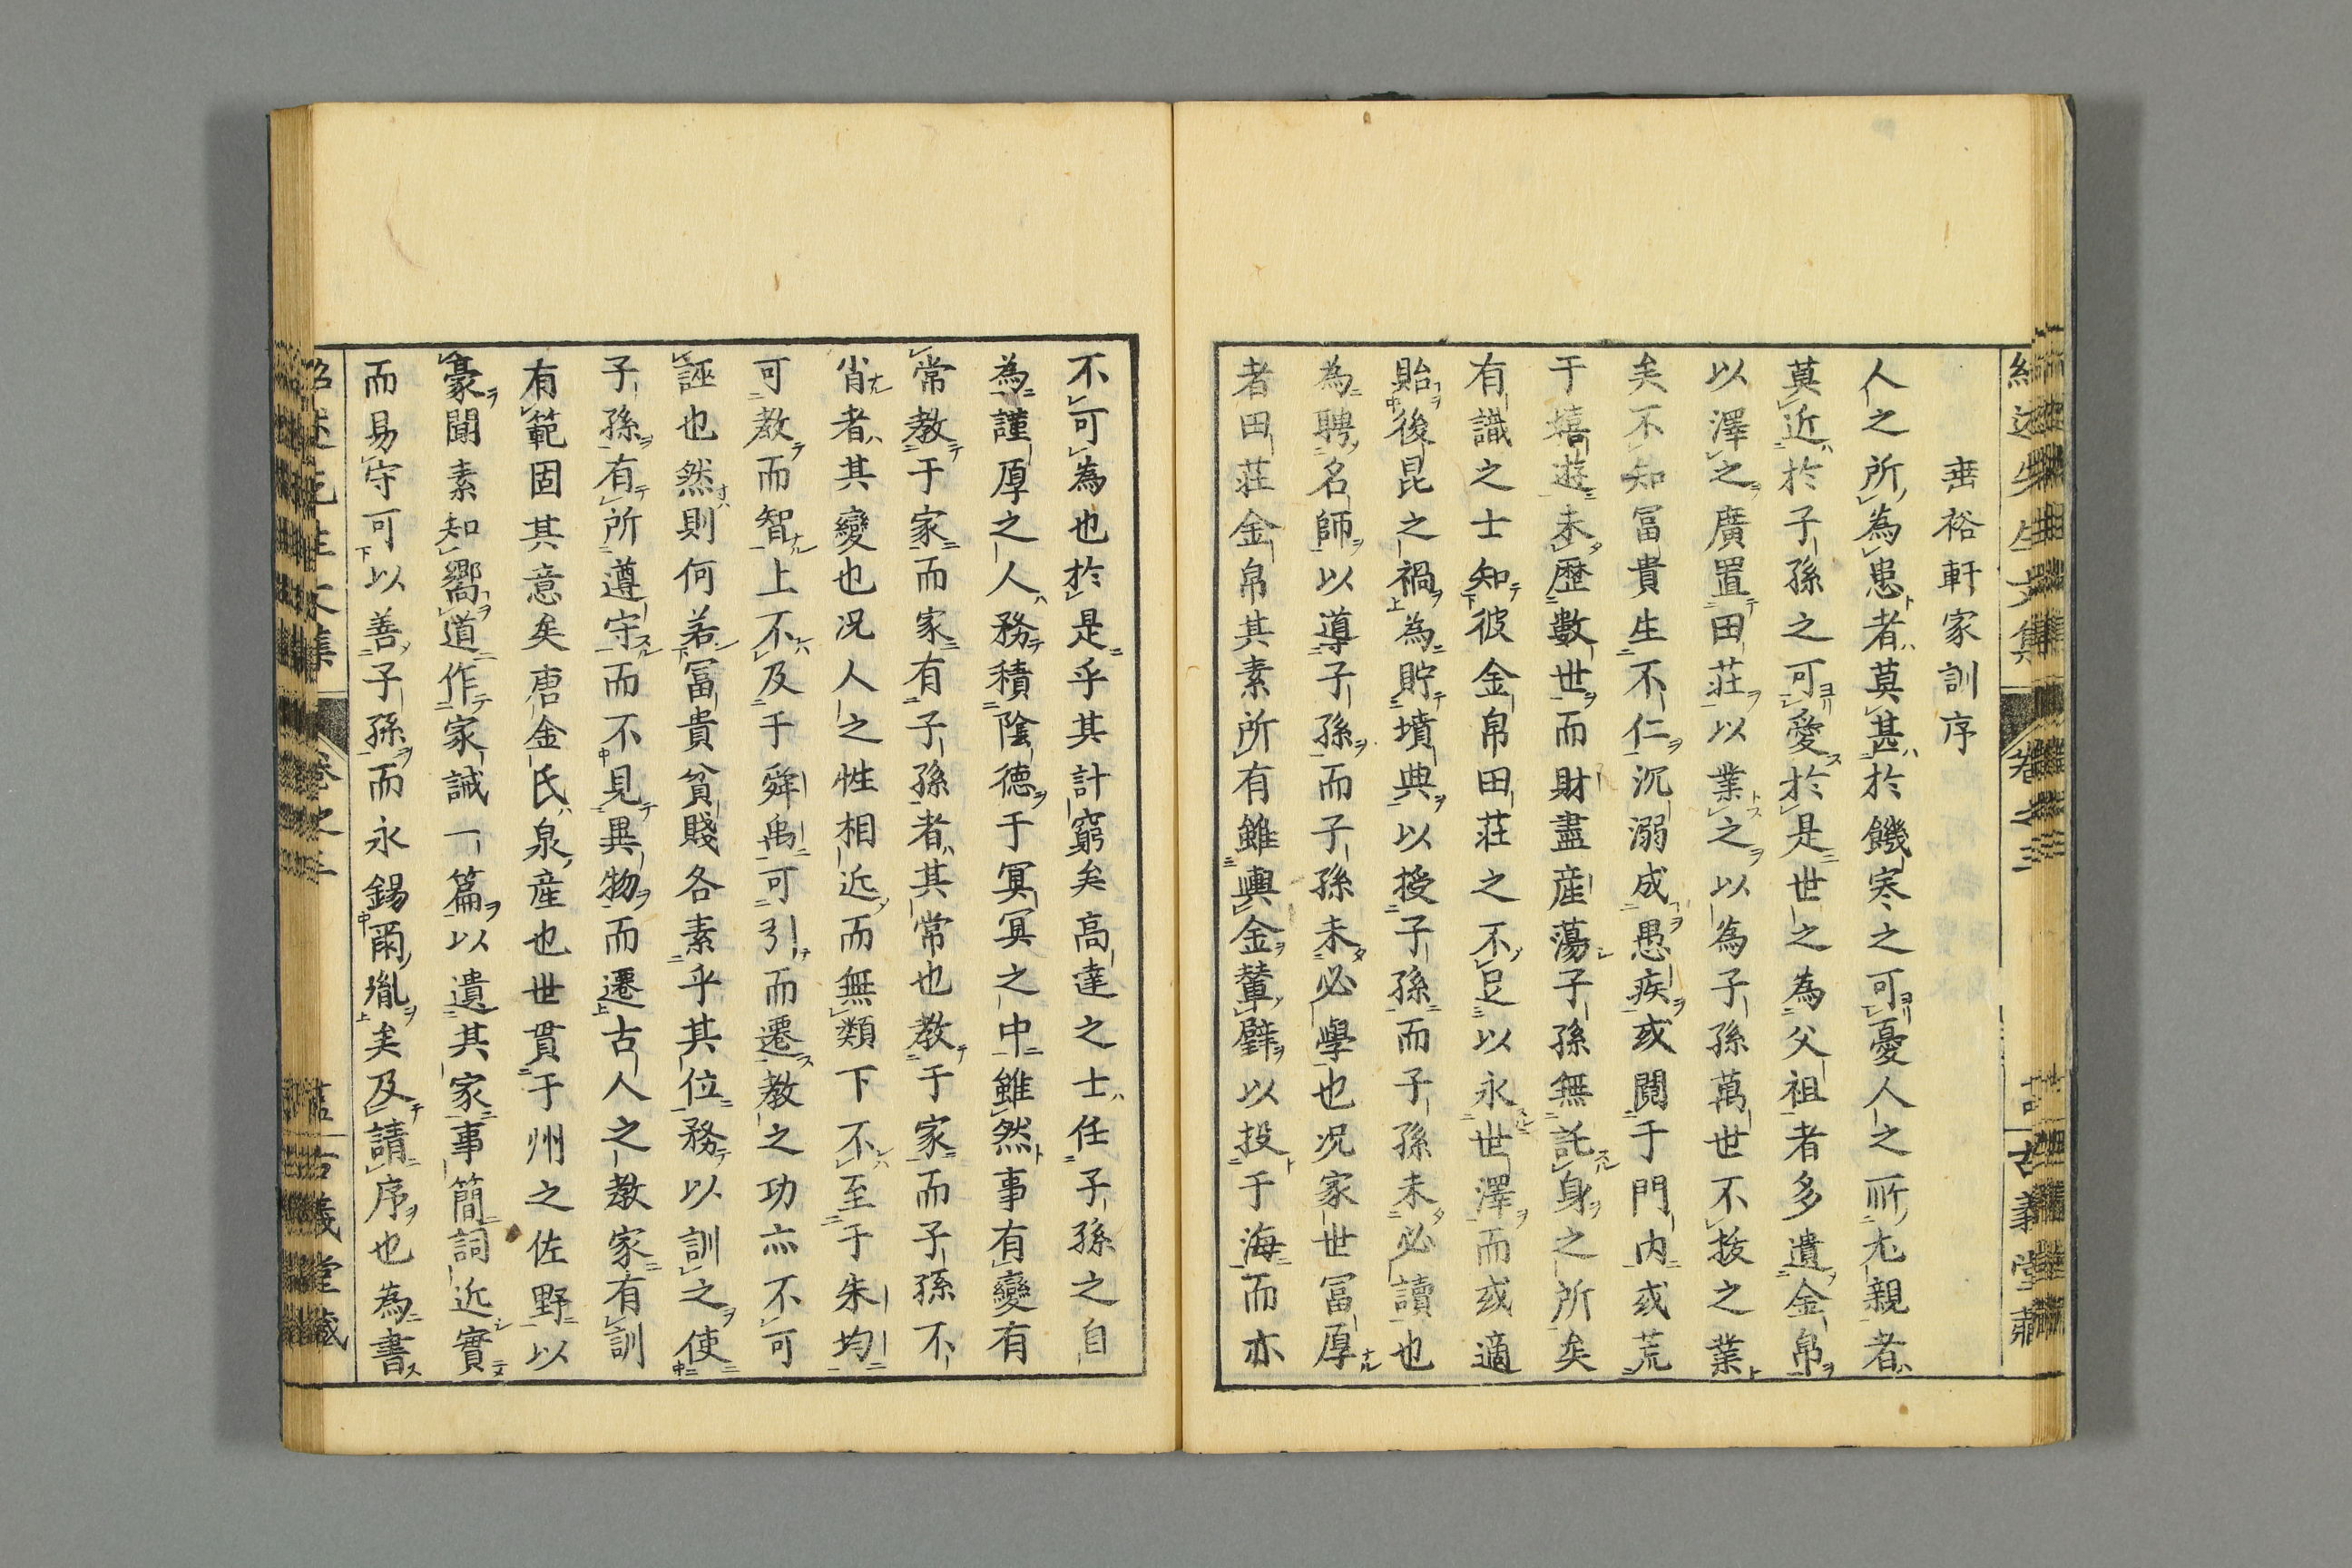 垂裕軒家訓序
人之所為患者莫甚於饑寒之可憂人之所尤親者
莫近於子孫之可愛於是世之為父祖者多遺金帛
以澤之廣置田莊以業之以為子孫萬世不拔之業
矣不知冨貴生不仁沉溺成愚疾或鬩于門内或荒
于嬉遊未歴數世而財盡産蕩子孫無託身之所矣
有識之士知彼金帛田莊之不足以永世澤而或適
貽後昆之禍為貯墳典以授子孫而子孫未必讀也
為聘名師以導子孫而子孫未必學也况家世冨厚
者田莊金帛其素所有雖輿金輦璧以投于海而亦
不可為也於是乎其計窮矣高達之士任子孫之自
為謹厚之人務積陰德于冥冥之中雖然事有變有
常教于家而家有子孫者其常也教于家而子孫不
肖者其變也况人之性相近而無類下不至于朱均
可教而智上不及于舜禹可引而遷教之功亦不可
誣也然則何若冨貴貧賤各素乎其位務以訓之使
子孫有所遵守而不見異物而遷古人之教家有訓
有範固其意矣唐金氏泉産也世貫于州之佐野以
豪聞素知嚮道作家誡一篇以遺其家事簡詞近實
而易守可以善子孫而永錫爾胤矣及請序也為書
紹述先生文集 卷之三 古義堂藏